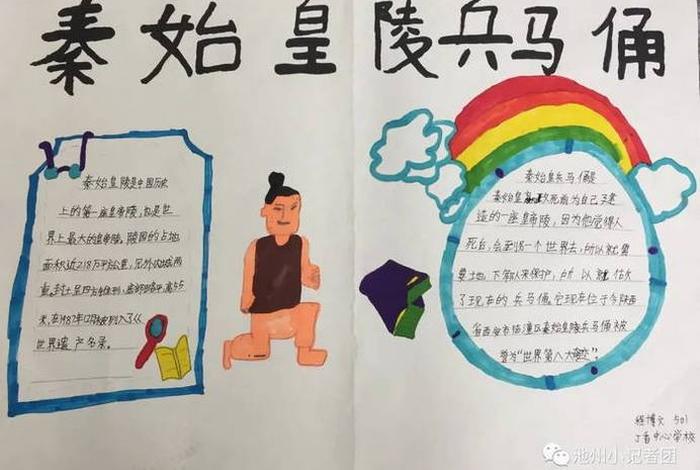 秦始皇陵兵马俑
秦始皇陵是中国历史
上的第一座皇帝陵,也是世
界上最大的皇帝陵。陵园的占地
面积近218万平方公里,另外内城两
重,封土呈四方锥形,高55
米,在1987年12月被列入了《
世界遗产名录。
秦始皇兵马俑是
秦始皇死前为自己建
造的一座皇帝陵,因为他觉得人
死后,会到另一个世界去,所以就需
要地下军队来保护,所以就做
了现在的兵马俑,它现在位于今陕西
省西安市临潼区秦始皇陵兵马俑被
誉为“世界第八大奇迹”。
程博文 501
丁香中心学校
池州小记者团